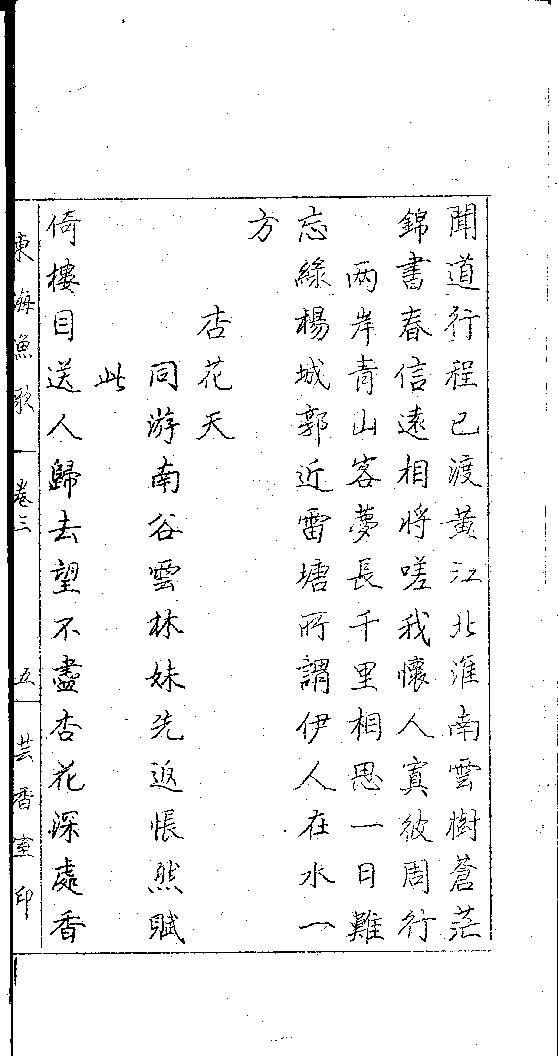 聞道行程已渡黃江北淮南雲樹蒼茫
錦書春信遠相將嗟我懷人寘彼周行
两岸青山客夢長千里相思一日難
忘綠楊城郭近雷塘所謂伊人在水一
方
杏花天
同游南谷雲林妹先返悵然賦
此
倚樓目送人歸去望不盡杏花深處香
東海漁歌 卷三 五 芸香室印